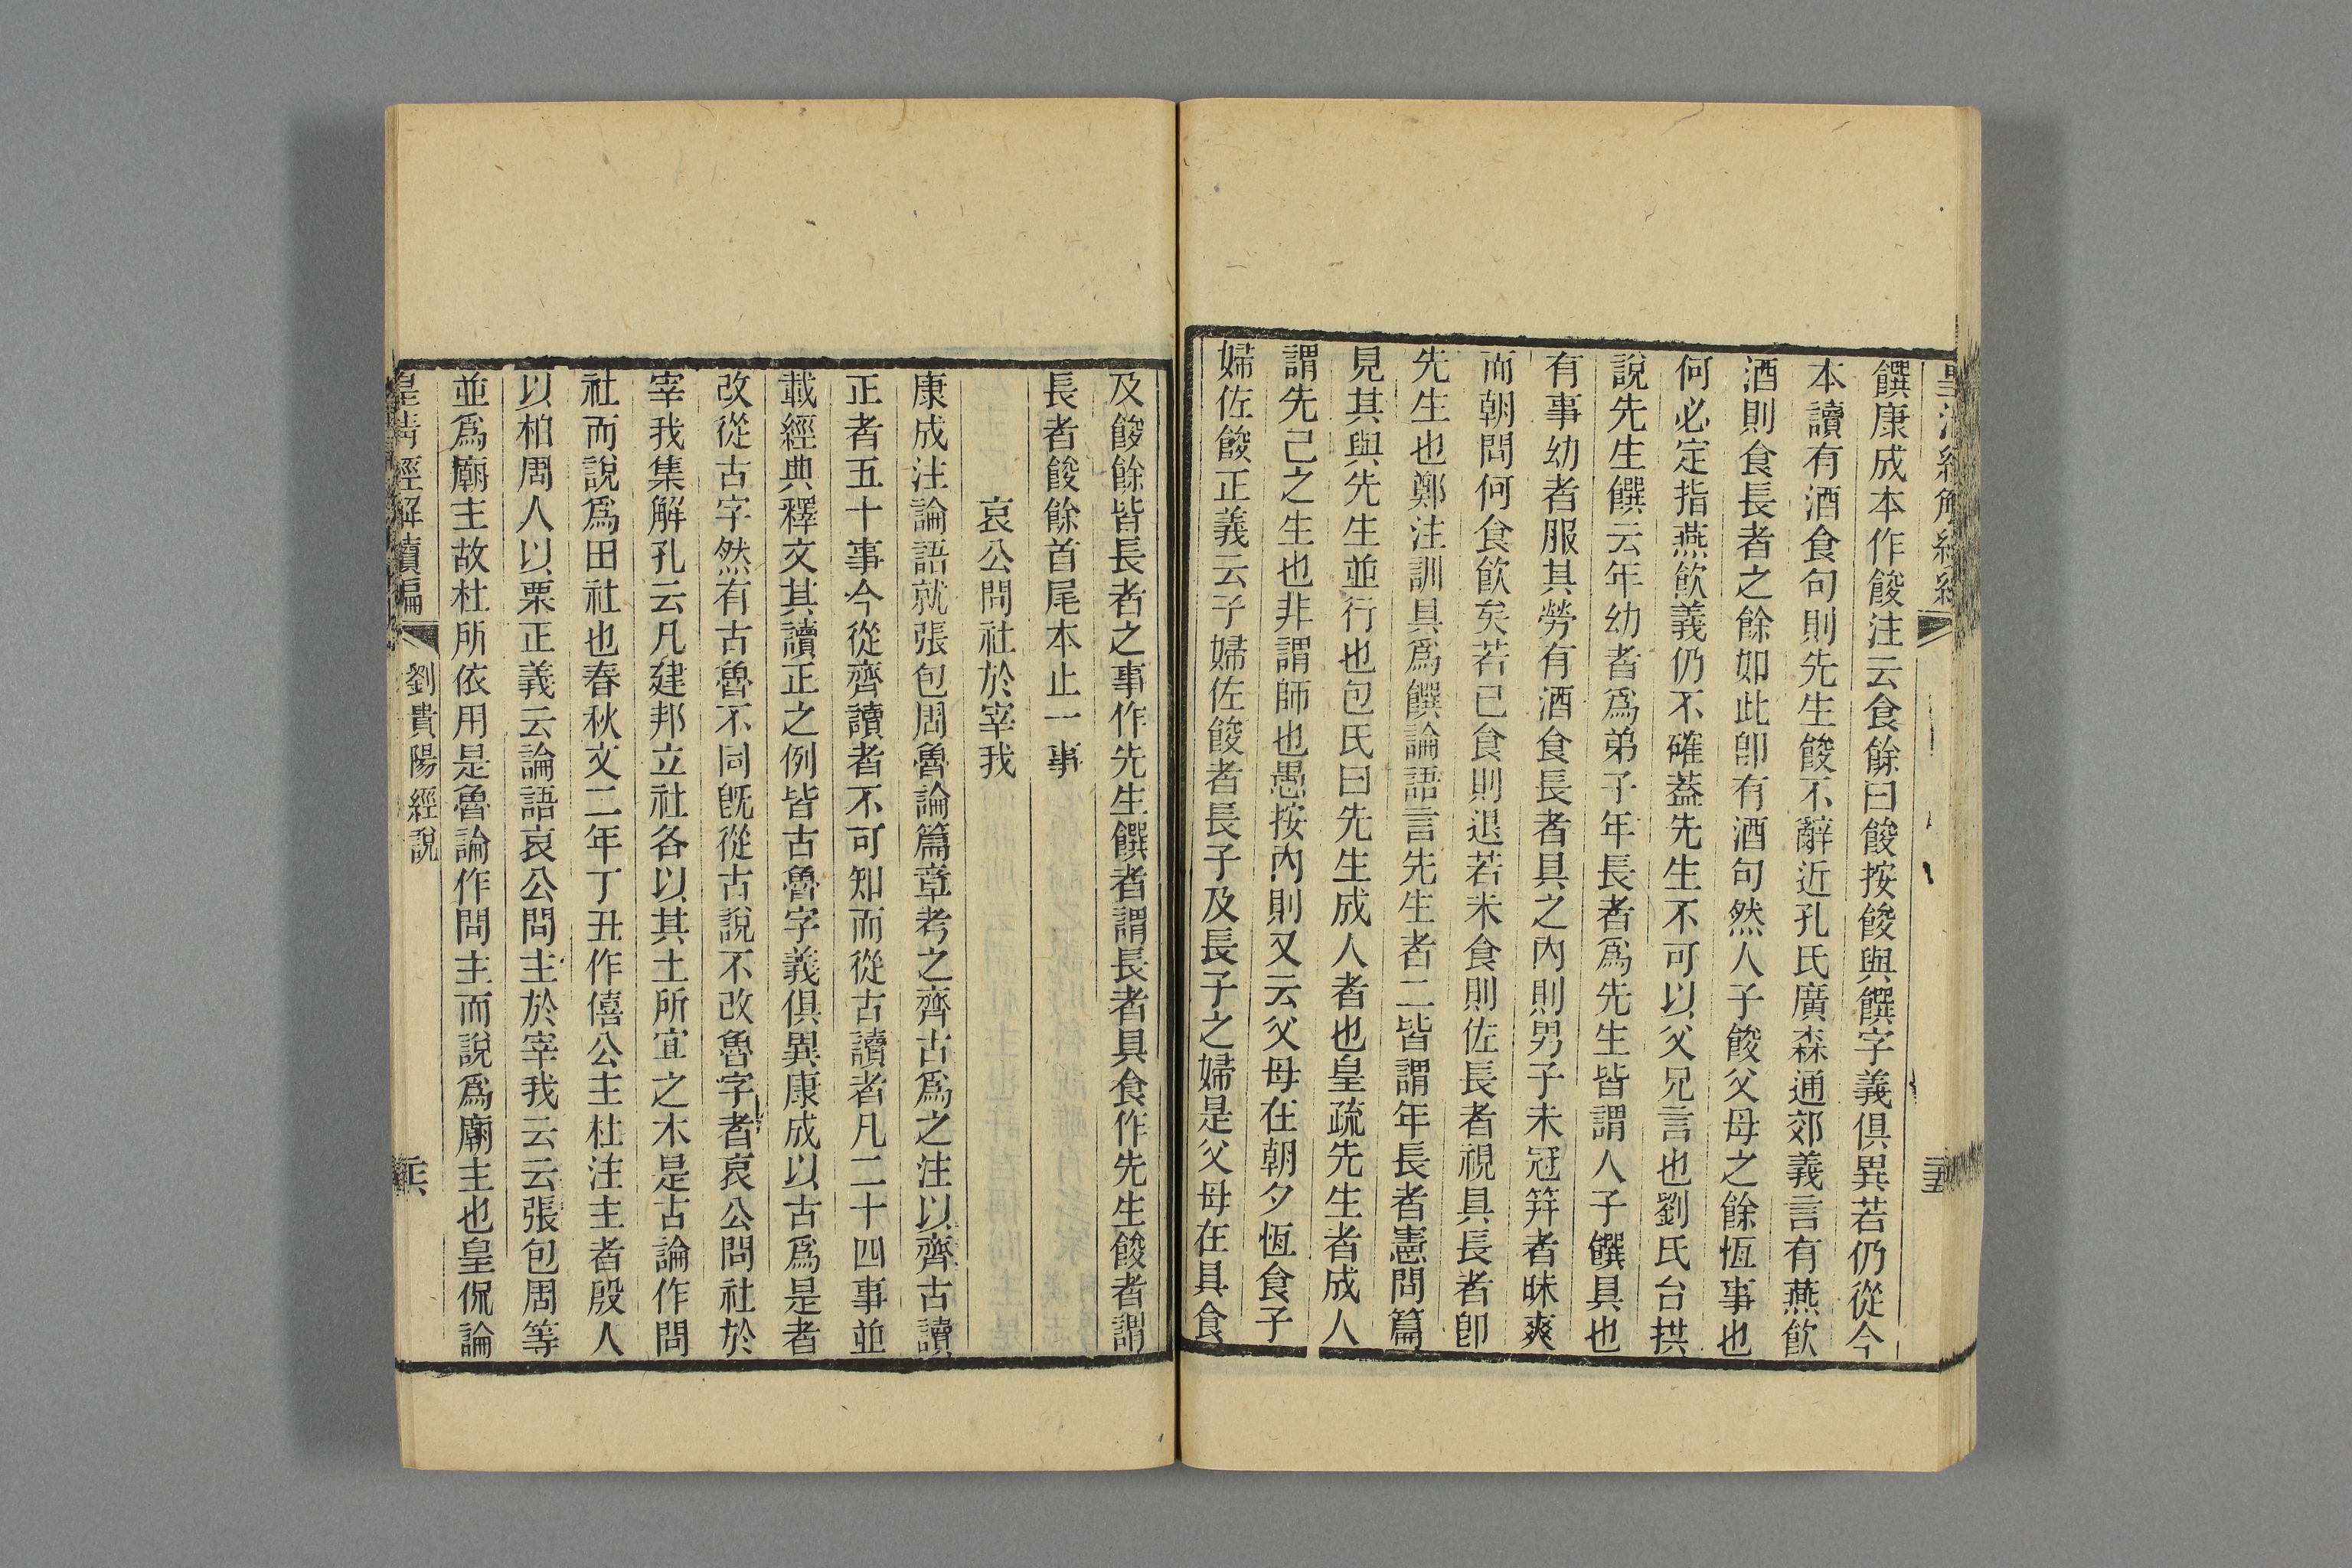 饌康成本作餕注云食餘曰餕按餕與饌字義俱異若仍從今
本讀有酒食句則先生餕不辭近孔氏廣森通郊義言有燕飮
酒則食長者之餘如此卽有酒句然人子餕父母之餘恆事也
何必定指燕飮義仍不確蓋先生不可以父兄言也劉氏台拱
說先生饌云年幼者爲弟子年長者爲先生皆謂人子饌具也
有事幼者服其勞有酒食長者具之內則男子未冠笄者昧爽
而朝問何食飮矣若已食則退若未食則佐長者視具長者卽
先生也鄭注訓具爲饌論語言先生者二皆謂年長者憲問篇
見其與先生並行也包氏曰先生成人者也皇疏先生者成人
謂先己之生也非謂師也愚按內則又云父母在朝夕恆食子
婦佐餕正義云子婦佐餕者長子及長子之婦是父母在具食
及餕餘皆長者之事作先生饌者謂長者具食作先生餕者謂
長者餕餘首尾本止一事
哀公問社於宰我
康成注論語就張包周魯論篇章考之齊古爲之注以齊古讀
正者五十事今從齊讀者不可知而從古讀者凡二十四事並
載經典釋文其讀正之例皆古魯字義俱異康成以古爲是者
改從古字然有古魯不同旣從古說不改魯字者哀公問社於
宰我集解孔云凡建邦立社各以其土所宜之木是古論作問
社而說爲田社也春秋文二年丁丑作僖公主杜注主者殷人
以柏周人以栗正義云論語哀公問主於宰我云云張包周等
並爲廟主故杜所依用是魯論作問主而說爲廟主也皇侃論
皇淸經解續編
劉貴陽經說